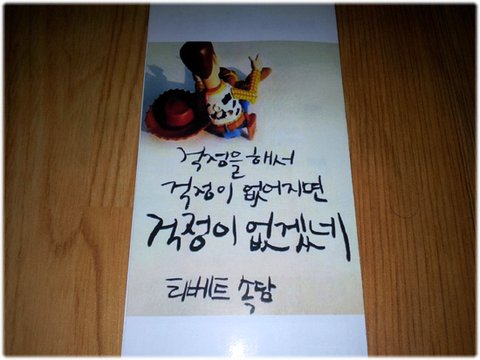 걱정을 해서
걱정이 없어지면
걱정이 없겠네
티베트 속담